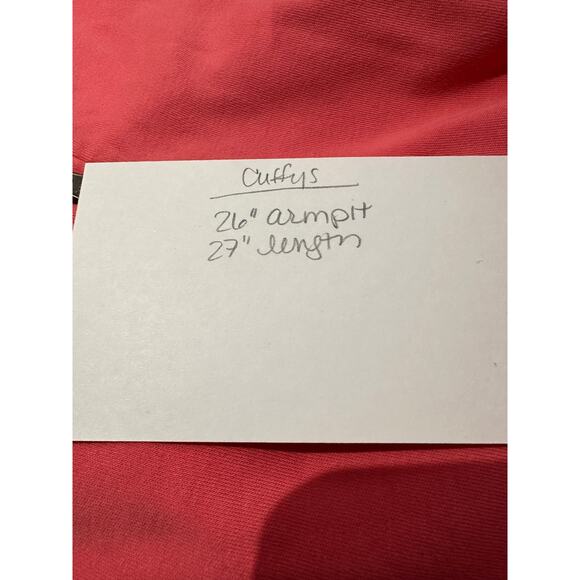 Cuffys
26" armpit
27" length